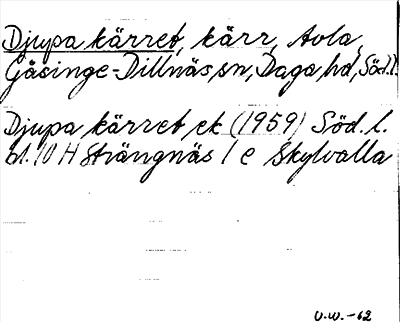 Djupa kärret, kärr, Avla,
Gåsinge-Dillnäs sn, Daga hd, Söd.l.
Djupa kärret ek (1959) Söd.l.
bl. 10 H Strängnäs 1 e Skylvalla
U.W.-62